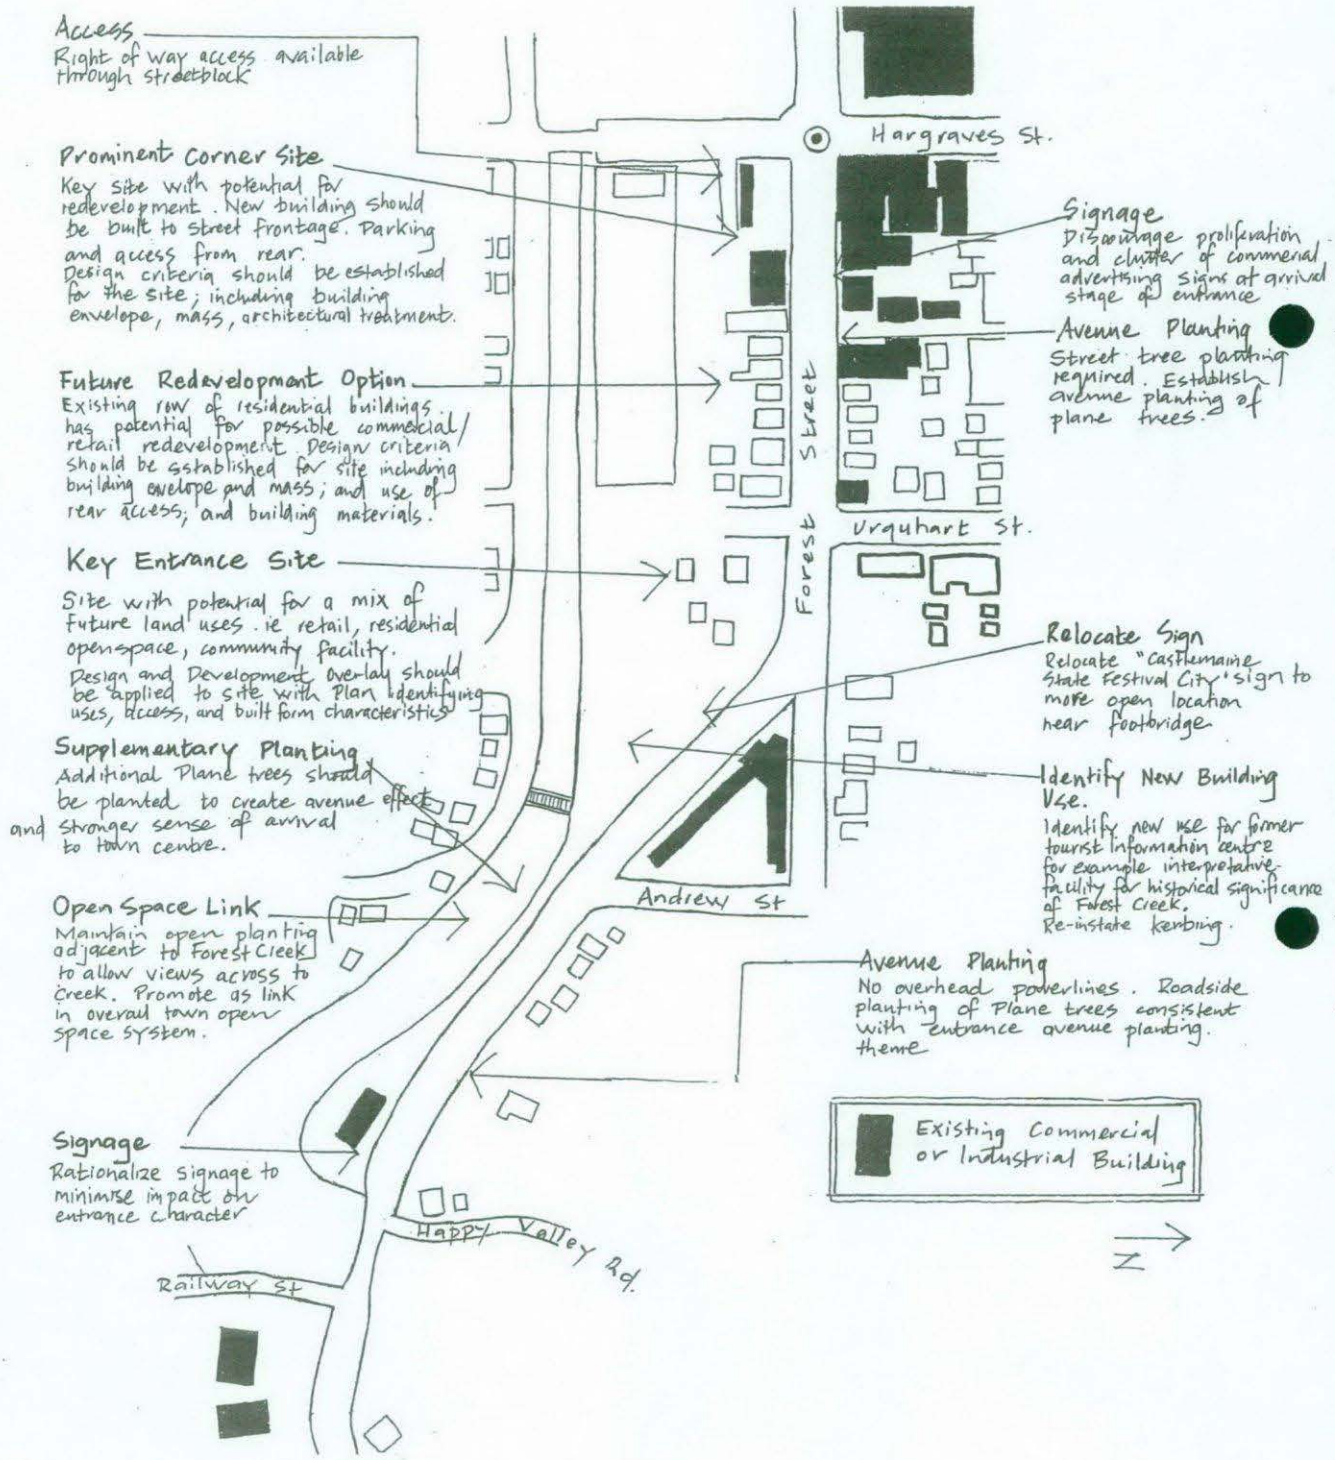 Access
Right of way access available
through streetblock
Prominent Corner Site
Key site with potential for
redevelopment. New building should
be built to street frontage. Parking
and access from rear.
Design criteria should be established
for the site; including building
envelope, mass, architectural treatment.
Future Redevelopment Option
Existing row of residential buildings
has potential for possible commercial/
retail redevelopment. Design criteria
should be established for site including
building envelope and mass; and use of
rear access; and building materials.
Key Entrance Site
Site with potential for a mix of
future land uses. ie retail, residential
openspace, community facility.
Design and Development overlay should
be applied to site with Plan identifying
uses, access, and built form characteristics
Supplementary Planting
Additional Plane trees should
be planted to create avenue effect
and stronger sense of arrival
to town centre.
Open Space Link
Maintain open planting
adjacent to Forest Creek
to allow views across to
Creek. Promote as link
in overall town open
space system.
Signage
Rationalize signage to
minimise impact on
entrance character
Railway St
Happy Valley Rd.
Hargraves St.
Forest Street
Urquhart St.
Andrew St
Signage
Discourage proliferation
and cluster of commerial
advertising signs at arrival
stage of entrance
Avenue Planting
Street tree planting
required. Establish
avenue planting of
plane trees.
Relocate Sign
Relocate "Castlemaine
State Festival City" sign to
more open location
near footbridge
Identify New Building
Use.
Identify new use for former
tourist information centre
for example interpretative
facility for historical significance
of Forest Creek.
Re-instate kerbing.
Avenue Planting
No overhead powerlines. Roadside
planting of Plane trees consistent
with entrance avenue planting.
theme
Existing Commercial
or Industrial Building
N